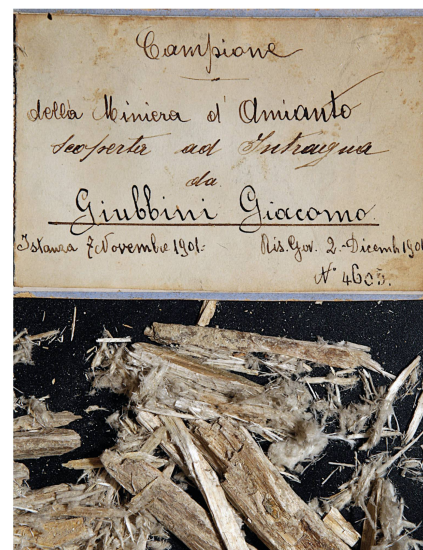 Campione
della Miniera d'Amianto
scoperta ad Intragna
da
Giubbini Giacomo.
Istanza 7 Novembre 1901.- Ris. Gov. 2.- Dicemb. 1901
N° 4603.